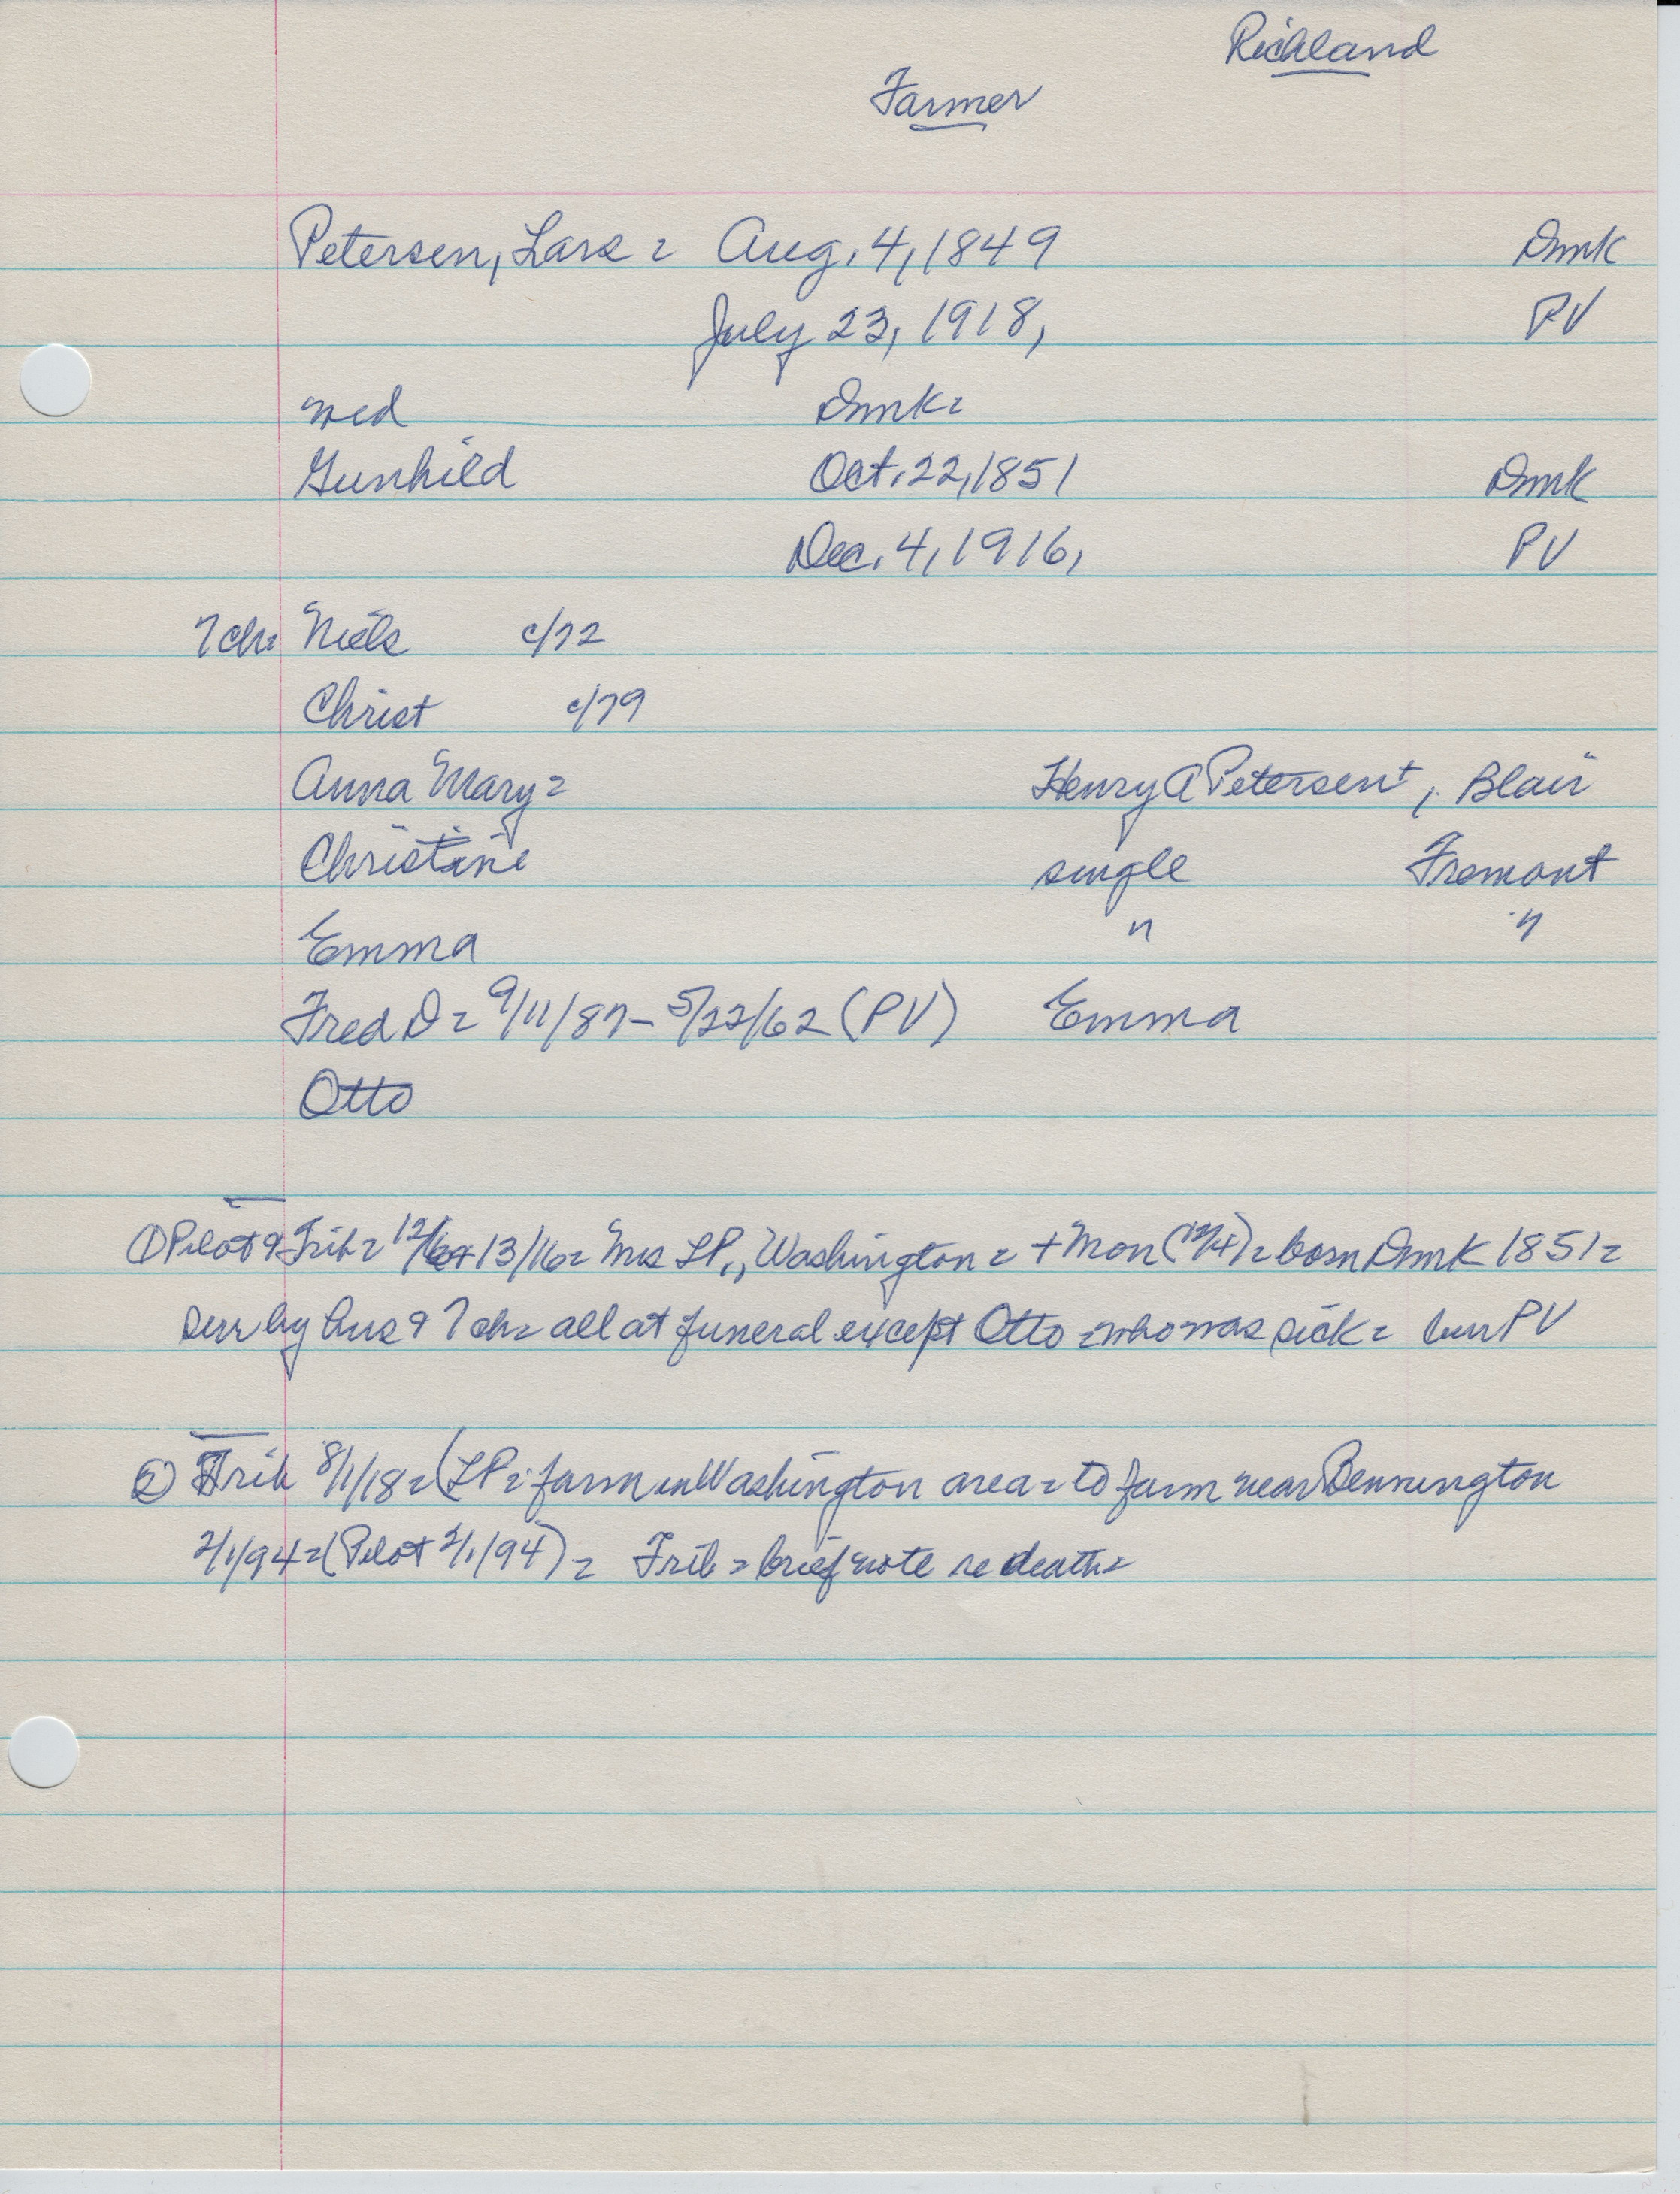 Richland
Farmer
Petersen, Lars = Aug. 4, 1849 Dmk
July 23, 1918, PV
wed Dmk=
Gunhild Oct. 22, 1851 Dmk
Dec. 4, 1916, PV
7 ch= Niels c/72
Christ c/79
Anna Mary= Henry A Petersen+, Blair
Christine single Fremont
Emma " "
Fred D= 9/11/87-5/22/62 (PV) Emma
Otto
① Pilot & Trib= 12/6+13/16= Mrs LP., Washington= + Mon (12/4)= born Dmk 1851=
surv by hus & 7 ch= all at funeral except Otto =who was sick= bur PV
② Trib 8/1/18= (LP= farm in Washington area= to farm near Bennington
2/1/94=(Pilot 2/1/94)= Trib= brief note re death=